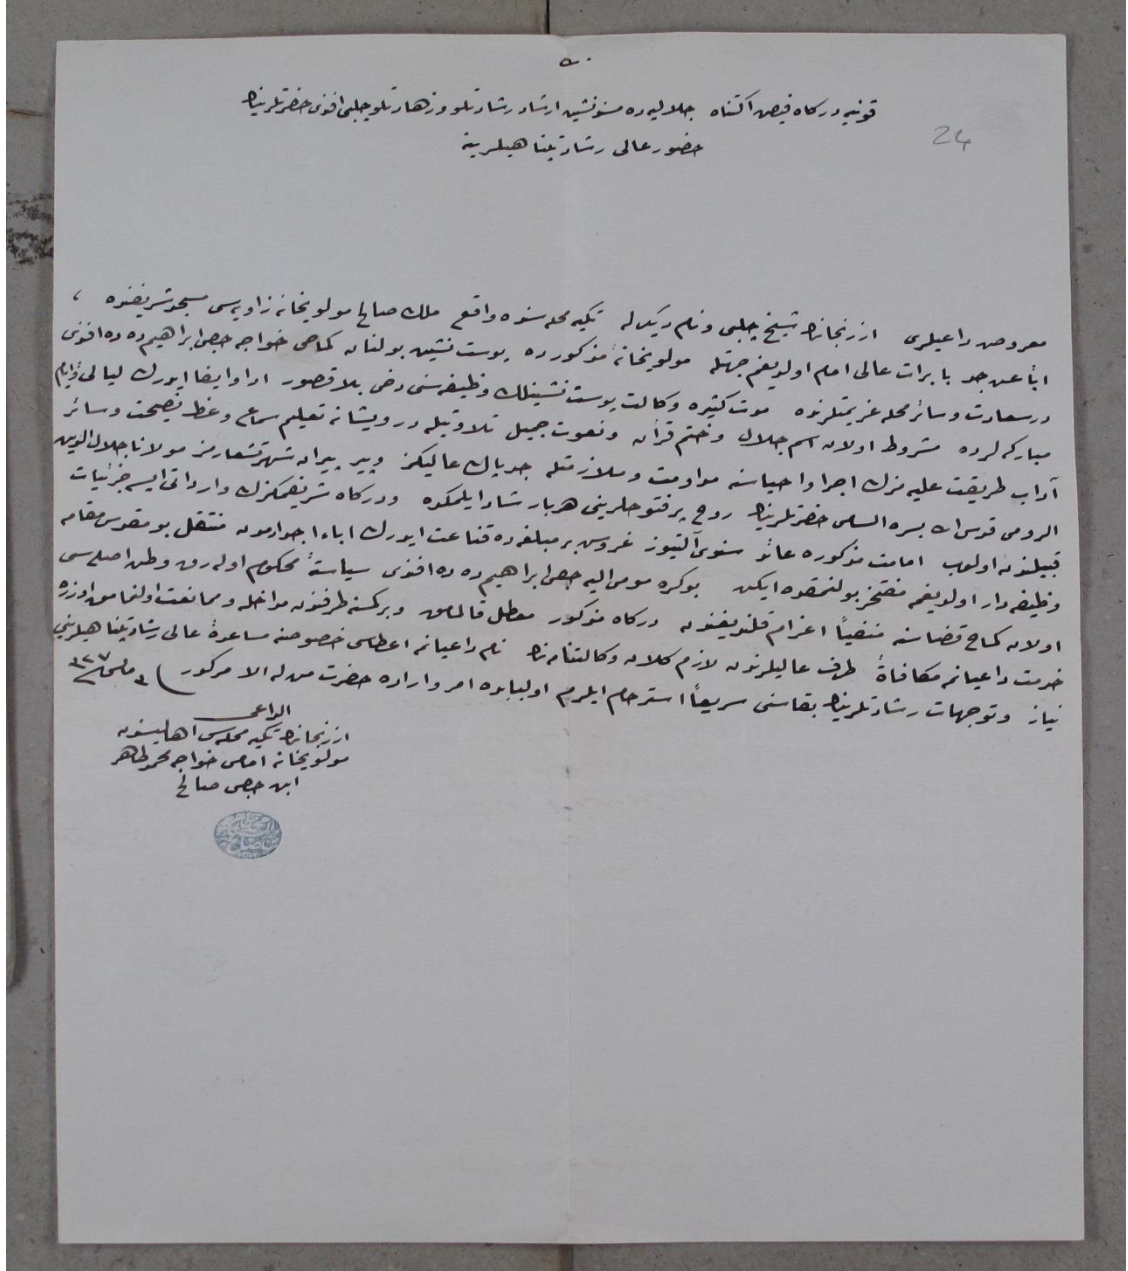 قونیه درگاه فیض اکتناه جلالیه ده مسندنشین ارشاد رشادتلو و زهادتلو چلبی افندی حضرتلرینك
حضور عالی رشادتپناهیلرینه
24
معروض داعیلری ارزنجانك شیخ چلبی و نام دیکرله تکیه محله سنده واقع ملك صالح مولویخانه زاویه سی مسجد شریفنده ،
اباً عن جد با برات عالی امام اولدیغم جهتله مولویخانهٔ مذکورده پوست نشین بولنان کماحی خواجه حاجی ابراهیم دده افندی
درسعادت و سائر محله عزیمتلرنده موت کثیره وکالت پوست نشینلك وظیفه سنی دخی بلا قصور ادا و ایفا ایدرك لیالی و ایام
مبارکه لرده مشروط اولان اسم جلال و ختم قرآن و نعوت جمیل تلاوتیله درویشانه تعلیم سماع و عظ و نصیحت و سائر
آداب طریقت علیه مزك اجرا و احیاسنه مداومت و ملازمتله جد پاك عالیکز و پیر پیران شهرتشعارمز مولانا جلال الدین
الرومی قدس الله سره السامی حضرتلرینك روح پرفتوحلرینی هربار شاد ایلمکده و درگاه شریفمزك وارداتی ایسه جزئیات
قبیلندن اولوب امامت مذکوره عائد سنوی آلتیوز غروش بر مبلغه ده قناعت ایدرك اباء اجدادمدن منتقل بو مقدس مقامه
وظیفه دار اولدیغمه مفتخر بولنمقده ایکن بوکره مومی الیه حاجی ابراهیم دده افندی سیاسةً محکوم اوله رق وطن اصلیسی
اولان کماح قضاسنه منفیاً اعزام قلندیغندن درگاه مذکور معطل قالمامق و برکسنه طرفندن مداخله و ممانعت اولنمامق اوزره
خدمت داعیانه مه مکافاةً طرف عالیلرندن لازم کلان وکالتنامه نك نام داعیانه مه اعطاسی خصوصنه مساعدهٔ عالی رشادتپناهیلرینی
نیاز و توجهات رشادتلرینك بقاسنی سریعاً استرحام ایلرم اولبابده امر و اراده حضرت من له الامرکدر
الداعی
ارزنجانك تکیه محله سی اهالیسندن
مولویخانه امامی خواجه محمد طاهر
ابن حاجی صالح